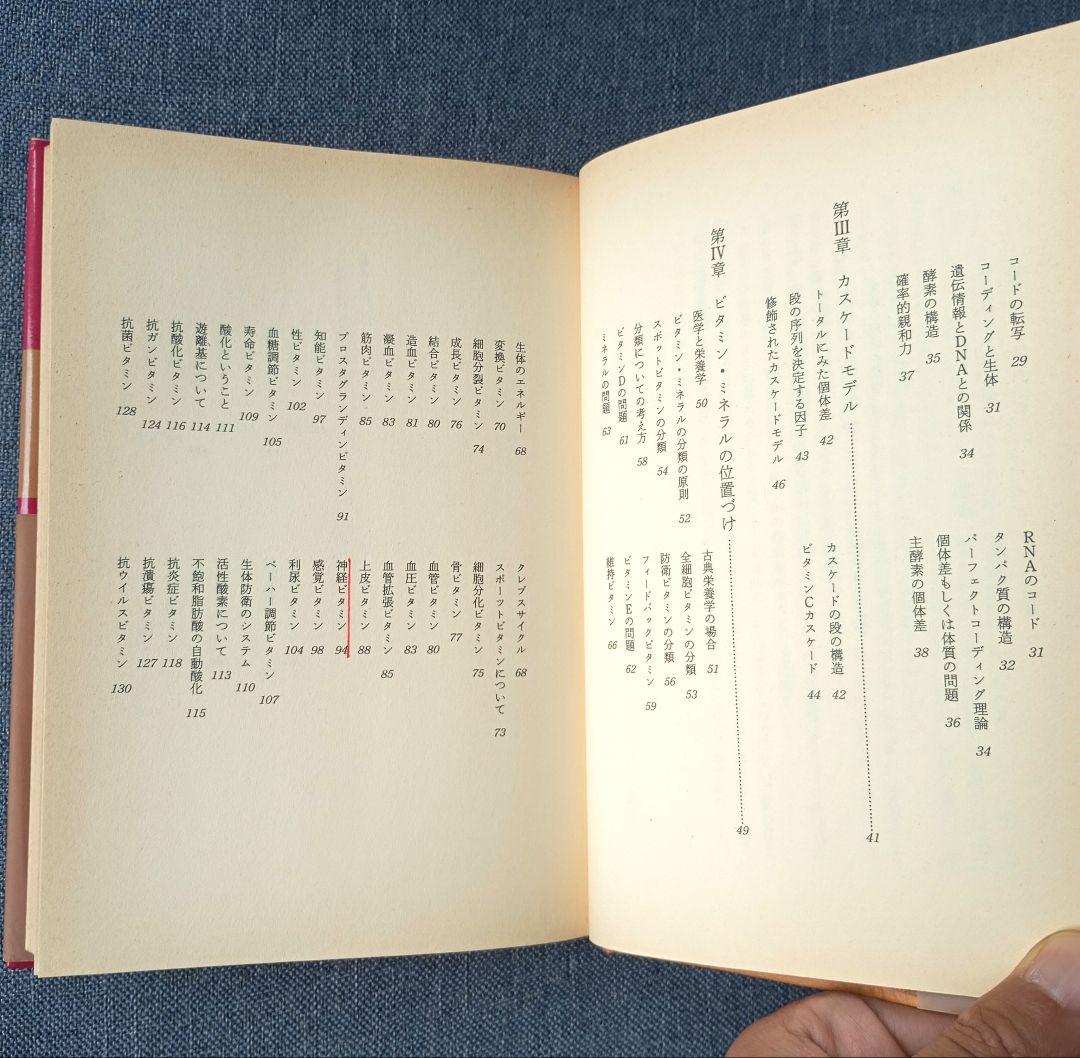 コードの転写 29 RNAのコード 31
コーディングと生体 31 タンパク質の構造 32
遺伝情報とDNAとの関係 34 パーフェクトコーディング理論 34
酵素の構造 35 個体差もしくは体質の問題 36
確率的親和力 37 主酵素の個体差 38
第Ⅲ章 カスケードモデル 41
トータルにみた個体差 42 カスケードの段の構造 42
段の序列を決定する因子 43 ビタミンCカスケード 44
修飾されたカスケードモデル 46
第Ⅳ章 ビタミン・ミネラルの位置づけ 49
医学と栄養学 50 古典栄養学の場合 51
ビタミン・ミネラルの分類の原則 52 全細胞ビタミンの分類 53
スポットビタミンの分類 54 防衛ビタミンの分類 56
分類についての考え方 58 フィードバックビタミン 59
ビタミンDの問題 61 ビタミンEの問題 62
ミネラルの問題 63 維持ビタミン 66
生体のエネルギー 68 クレブスサイクル 68
変換ビタミン 70 スポーツビタミンについて 73
細胞分裂ビタミン 74 細胞分化ビタミン 75
成長ビタミン 76 骨ビタミン 77
結合ビタミン 80 血管ビタミン 80
造血ビタミン 81 血圧ビタミン 83
凝血ビタミン 83 血管拡張ビタミン 85
筋肉ビタミン 85 上皮ビタミン 88
プロスタグランディンビタミン 91 神経ビタミン 94
知能ビタミン 97 感覚ビタミン 98
性ビタミン 102 利尿ビタミン 104
血糖調節ビタミン 105 ペーハー調節ビタミン 107
寿命ビタミン 109 生体防衛のシステム 110
酸化ということ 111 活性酸素について 113
遊離基について 114 不飽和脂肪酸の自動酸化 115
抗酸化ビタミン 116 抗炎症ビタミン 118
抗ガンビタミン 124 抗潰瘍ビタミン 127
抗菌ビタミン 128 抗ウイルスビタミン 130